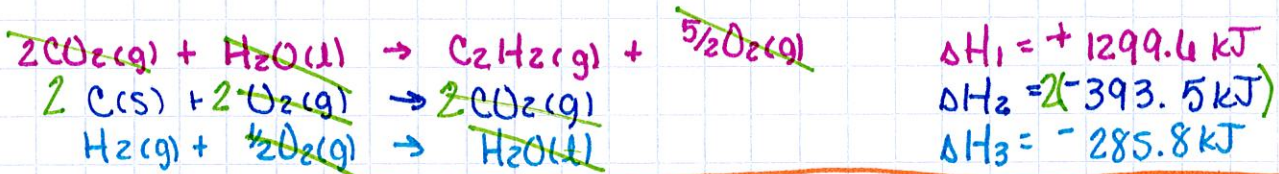 2CO2(g) + H2O(l) → C2H2(g) + 5/2O2(g) ΔH1 = + 1299.6 kJ
2 C(s) + 2 O2(g) → 2 CO2(g) ΔH2 = 2(-393.5 kJ)
H2(g) + 1/2O2(g) → H2O(l) ΔH3 = - 285.8 kJ